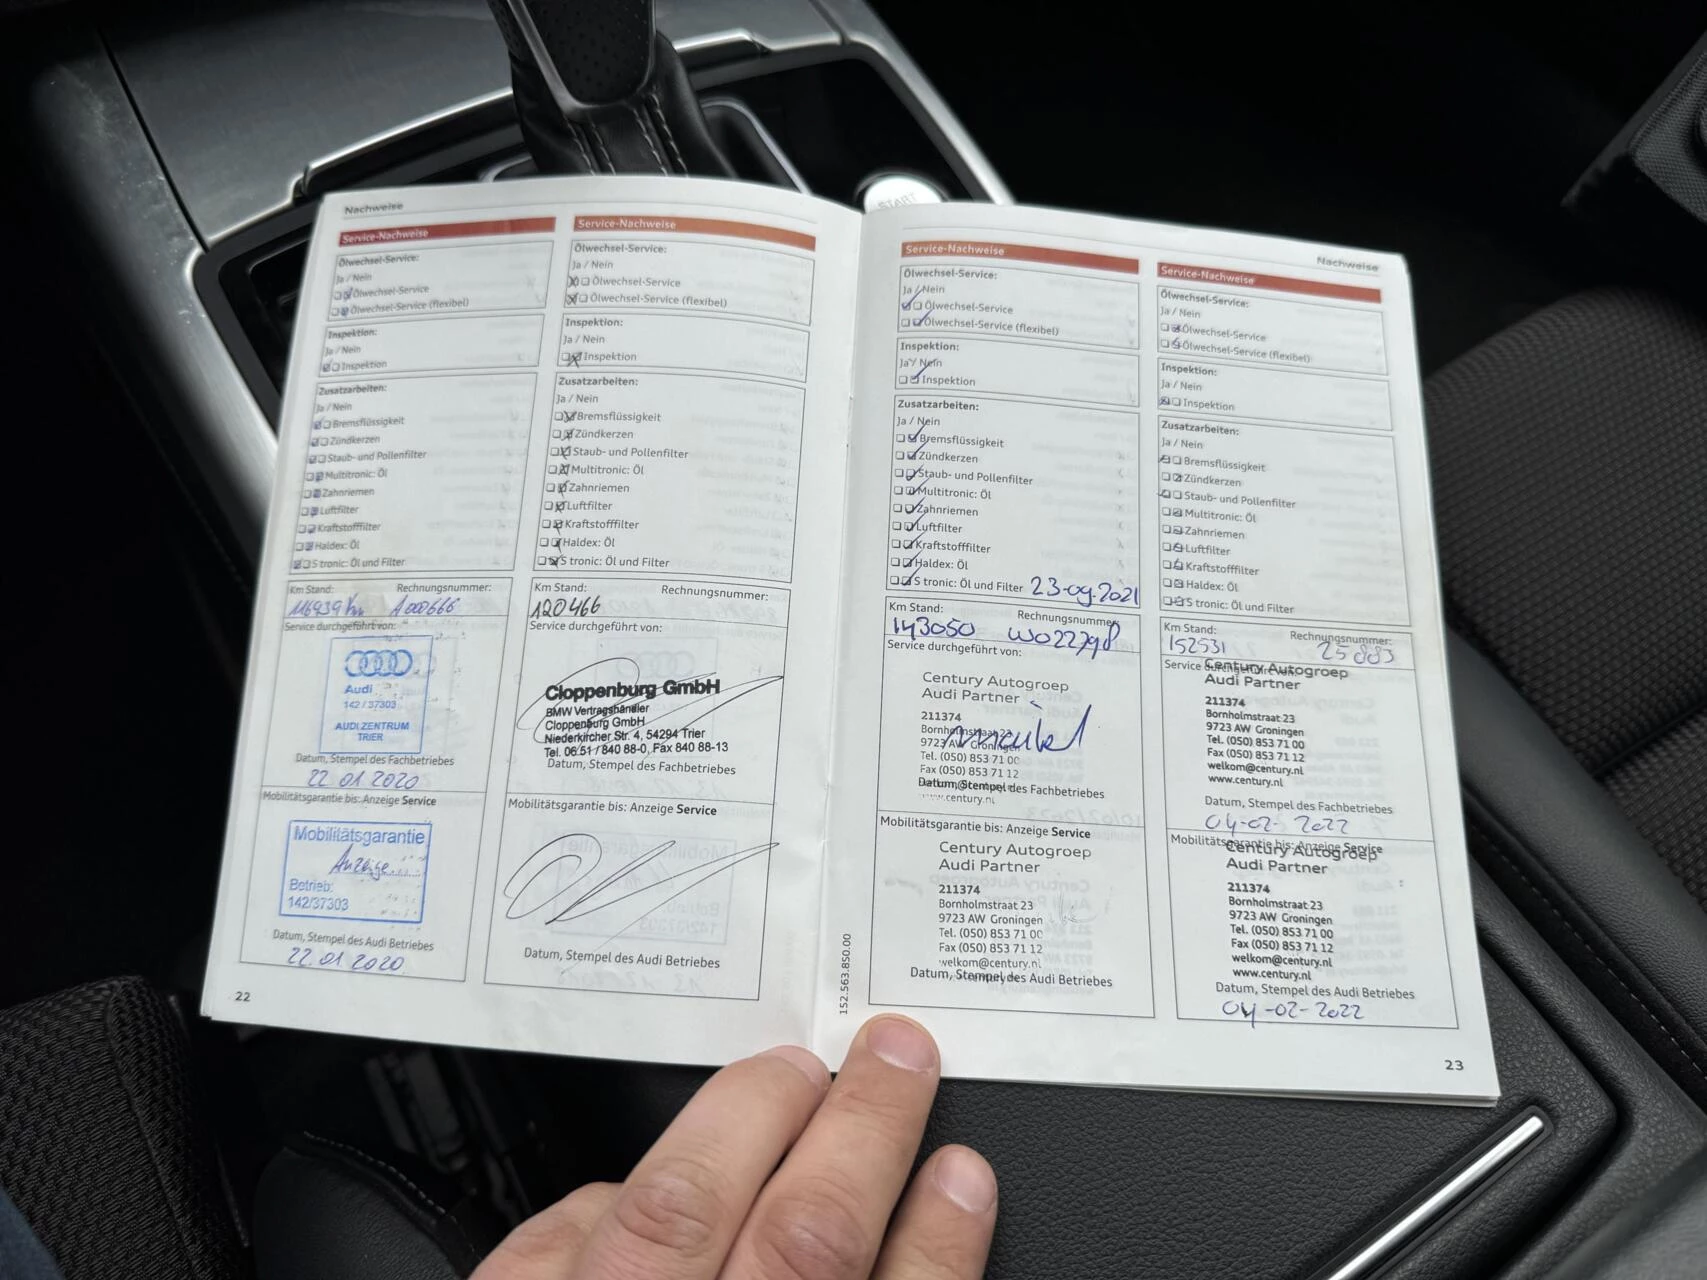 START
Nachweise
Service-Nachweise
Ölwechsel-Service:
Ja / Nein
Ölwechsel-Service
Ölwechsel-Service (flexibel)
Inspektion:
Ja / Nein
Inspektion
Zusatzarbeiten:
Ja / Nein
Bremsflüssigkeit
Zündkerzen
Staub- und Pollenfilter
Multitronic: Öl
Zahnriemen
Luftfilter
Kraftstofffilter
Haldex: Öl
S tronic: Öl und Filter
Km Stand: Rechnungsnummer:
116939 km A000666
Service durchgeführt von:
Audi
142 / 37303
AUDI ZENTRUM
TRIER
Datum, Stempel des Fachbetriebes
22.01.2020
Mobilitätsgarantie bis: Anzeige Service
Mobilitätsgarantie
Anzeige
Betrieb:
142/37303
Datum, Stempel des Audi Betriebes
22.01.2020
22
Service-Nachweise
Ölwechsel-Service:
Ja / Nein
Ölwechsel-Service
Ölwechsel-Service (flexibel)
Inspektion:
Ja / Nein
Inspektion
Zusatzarbeiten:
Ja / Nein
Bremsflüssigkeit
Zündkerzen
Staub- und Pollenfilter
Multitronic: Öl
Zahnriemen
Luftfilter
Kraftstofffilter
Haldex: Öl
S tronic: Öl und Filter
Km Stand: Rechnungsnummer:
120466
Service durchgeführt von:
Cloppenburg GmbH
BMW Vertragshändler
Cloppenburg GmbH
Niederkircher Str. 4, 54294 Trier
Tel. 06 51 / 840 88-0, Fax 840 88-13
Datum, Stempel des Fachbetriebes
Mobilitätsgarantie bis: Anzeige Service
Datum, Stempel des Audi Betriebes
152.563.850.00
Service-Nachweise
Ölwechsel-Service:
Ja / Nein
Ölwechsel-Service
Ölwechsel-Service (flexibel)
Inspektion:
Ja / Nein
Inspektion
Zusatzarbeiten:
Ja / Nein
Bremsflüssigkeit
Zündkerzen
Staub- und Pollenfilter
Multitronic: Öl
Zahnriemen
Luftfilter
Kraftstofffilter
Haldex: Öl
S tronic: Öl und Filter 23-09-2021
Km Stand: Rechnungsnummer:
143050
Service durchgeführt von:
Century Autogroep
Audi Partner
211374
Bornholmstraat 23
9723 AW Groningen
Tel. (050) 853 71 00
Fax (050) 853 71 12
Datum, Stempel des Fachbetriebes
www.century.nl
Mobilitätsgarantie bis: Anzeige Service
Century Autogroep
Audi Partner
211374
Bornholmstraat 23
9723 AW Groningen
Tel. (050) 853 71 00
Fax (050) 853 71 12
welkom@century.nl
Datum, Stempel des Audi Betriebes
Nachweise
Service-Nachweise
Ölwechsel-Service:
Ja / Nein
Ölwechsel-Service
Ölwechsel-Service (flexibel)
Inspektion:
Ja / Nein
Inspektion
Zusatzarbeiten:
Ja / Nein
Bremsflüssigkeit
Zündkerzen
Staub- und Pollenfilter
Multitronic: Öl
Zahnriemen
Luftfilter
Kraftstofffilter
Haldex: Öl
S tronic: Öl und Filter
Km Stand: Rechnungsnummer:
152531 25883
Service durchgeführt von:
Century Autogroep
Audi Partner
211374
Bornholmstraat 23
9723 AW Groningen
Tel. (050) 853 71 00
Fax (050) 853 71 12
welkom@century.nl
www.century.nl
Datum, Stempel des Fachbetriebes
04-02-2022
Mobilitätsgarantie bis: Anzeige Service
Century Autogroep
Audi Partner
211374
Bornholmstraat 23
9723 AW Groningen
Tel. (050) 853 71 00
Fax (050) 853 71 12
welkom@century.nl
www.century.nl
Datum, Stempel des Audi Betriebes
04-02-2022
23